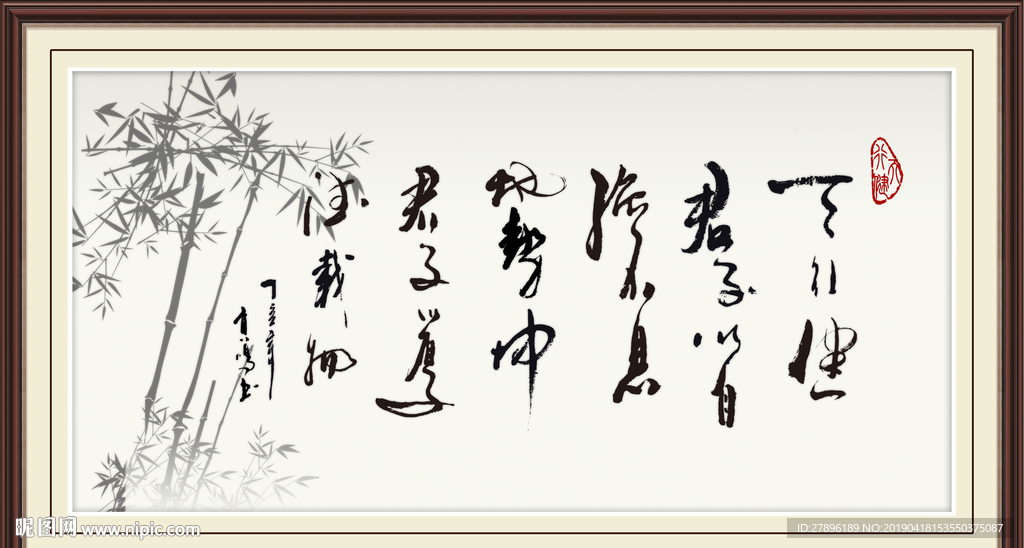 天行健
天行健
君子以自
强不息
地势坤
君子以厚
德载物
丁亥年
昵图网 www.nipic.com
ID:27896189 NO:20190418153550375087